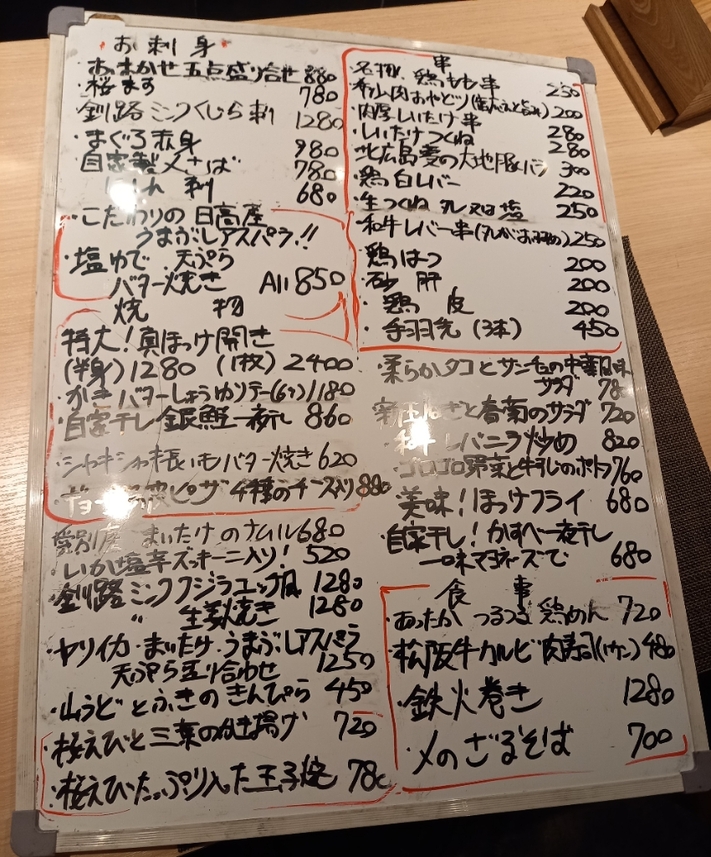 お刺身
・おまかせ五点盛り合せ 880
・桜ます 780
釧路ミンクくじら刺 1280
・まぐろ赤身 980
・自家製〆さば 780
刺 680
・こだわりの日高産
うまぶしアスパラ!!
・塩ゆで 天ぷら
バター焼き All 850
焼物
特大!真ほっけ開き
(半身)1280 (1枚)2400
・かきバターしょうゆソテー(6ケ)1180
・自家干し銀鮭一夜干し 860
・シャキシャキ長いもバター焼き 620
ピザ 4種のチーズ入り 880
愛別産 まいたけのナムル 680
・いか塩辛ズッキーニ入り! 520
・釧路ミンククジラユッケ風 1280
〃 生姜焼き 1280
・ヤリイカ・まいたけ・うまぶしアスパラ
天ぷら盛り合わせ 1250
・山うどとふきのきんぴら 450
・桜えびと三葉のかき揚げ 720
・桜えびたっぷり入った玉子焼 780
串
・名物、鶏もも串 250
200
・肉厚しいたけ串 280
・しいたけつくね 280
・北広島麦の大地豚バラ 300
・鶏白レバー 220
・生つくね タレ又は塩 250
・和牛レバー串(タレがおすすめ) 250
・鶏はつ 200
・砂肝 200
・鶏皮 200
・手羽先(3本) 450
・柔らかタコと の中華風味
サラダ 78
新玉ねぎと春菊のサラダ 720
・和牛レバニラ炒め 820
・ゴロゴロ野菜と牛すじのポトフ 760
・美味!ほっけフライ 680
・自家干し!かすべ一夜干し
一味マヨネーズで 680
食事
・あったか つるつる 鶏めん 720
・松阪牛カルビ肉寿司(1カン) 480
・鉄火巻き 1280
・〆のざるそば 700